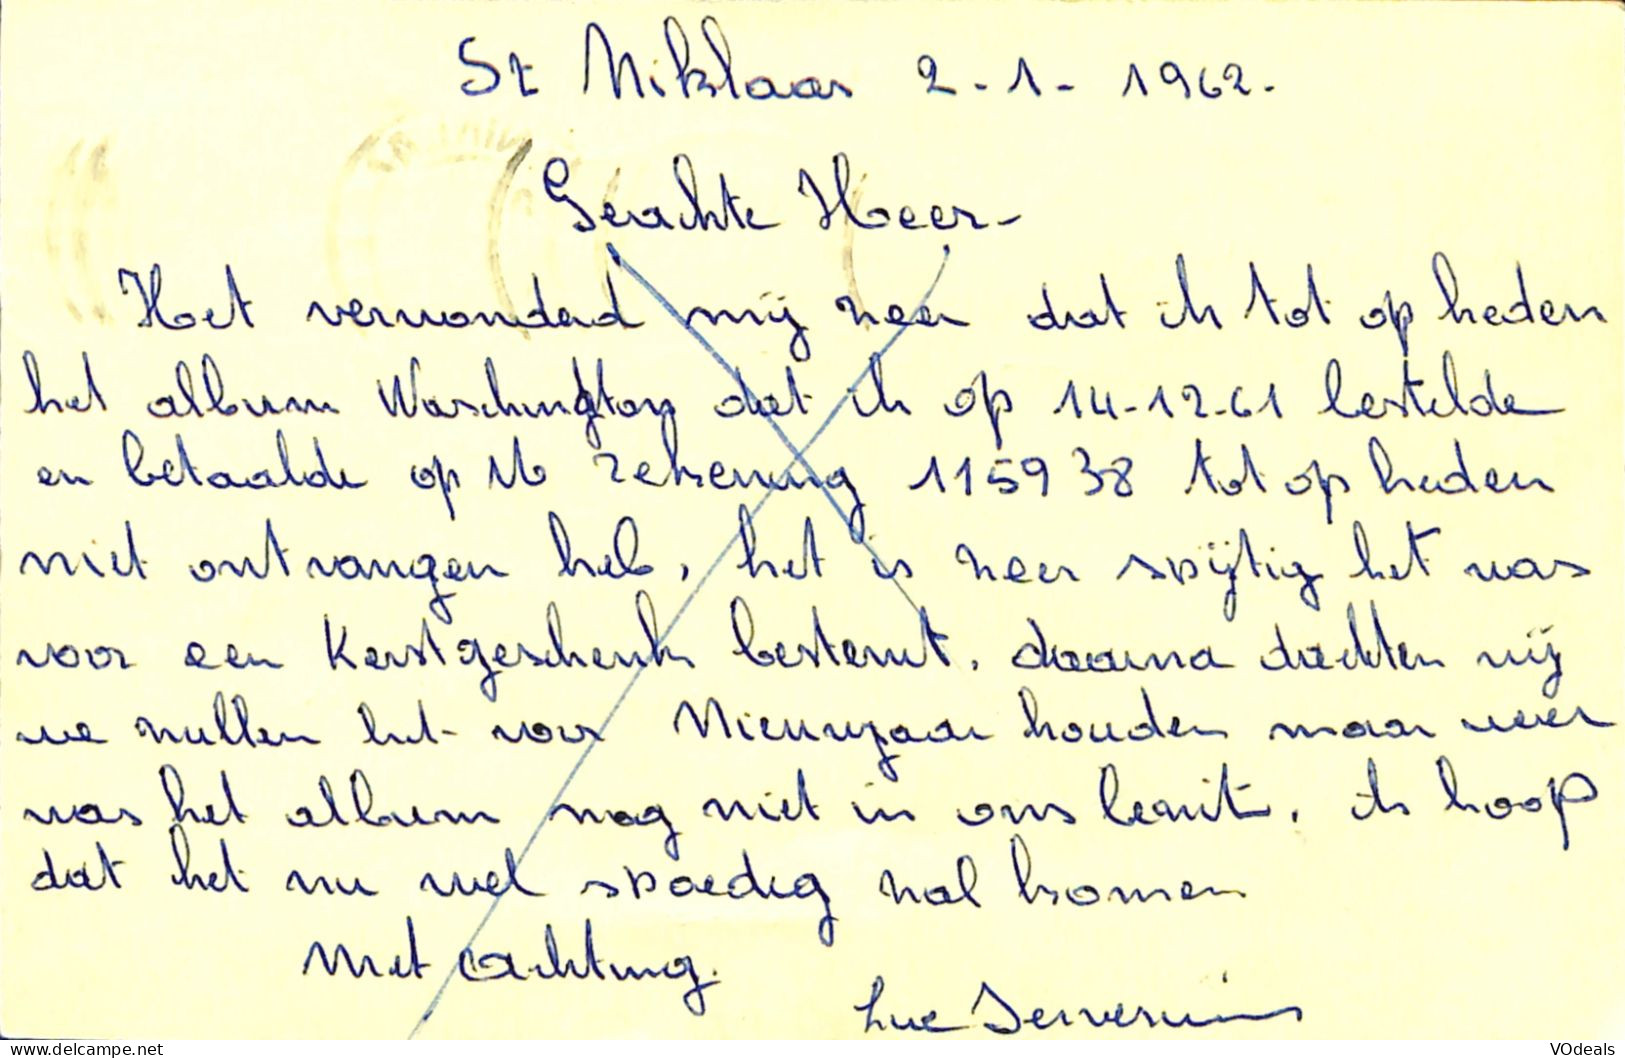 St Niklaas 2-1-1962.
Geachte Heer-
Het verwonderd mij zeer dat ik tot op heden
het album Waschington dat ik op 14-12-61 bestelde
en betaalde op Uw rekening 115938 tot op heden
niet ontvangen heb, het is zeer spijtig het was
voor een Kerstgeschenk bestemt. daarna dachten wij
we zullen het voor Nieuwjaar houden maar weer
was het album nog niet in ons bezit. ik hoop
dat het nu wel spoedig zal komen
Met achting.
Luc
www.delcampe.net
VOdeals